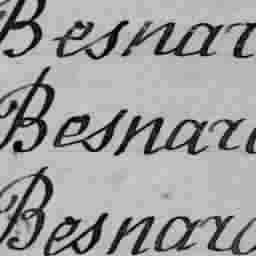 Besnar
Besnard
Besnard